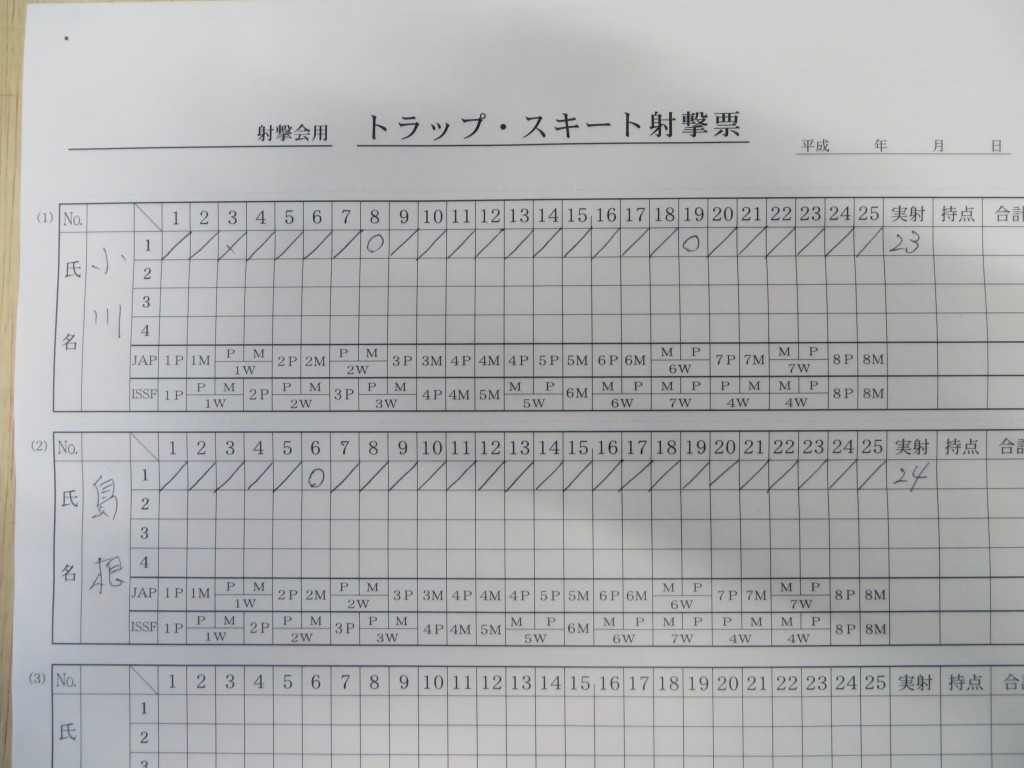 射撃会用 トラップ・スキート射撃票 平成 年 月 日
(1) No. 1 2 3 4 5 6 7 8 9 10 11 12 13 14 15 16 17 18 19 20 21 22 23 24 25 実射 持点 合計
氏名 小川 1 / / × / / / / O / / / / / / / / / / O / / / / / / 23
2
3
4
JAP 1P 1M P M 1W 2P 2M P M 2W 3P 3M 4P 4M 4P 5P 5M 6P 6M M P 6W 7P 7M M P 7W 8P 8M
ISSF 1P P M 1W 2P P M 2W 3P P M 3W 4P 4M 5M M P 5W 6M M P 6W M P 7W P M 4W M P 4W 8P 8M
(2) No. 1 2 3 4 5 6 7 8 9 10 11 12 13 14 15 16 17 18 19 20 21 22 23 24 25 実射 持点 合計
氏名 島根 1 / / / / / O / / / / / / / / / / / / / / / / / / / 24
2
3
4
JAP 1P 1M P M 1W 2P 2M P M 2W 3P 3M 4P 4M 4P 5P 5M 6P 6M M P 6W 7P 7M M P 7W 8P 8M
ISSF 1P P M 1W 2P P M 2W 3P P M 3W 4P 4M 5M M P 5W 6M M P 6W M P 7W P M 4W M P 4W 8P 8M
(3) No. 1 2 3 4 5 6 7 8 9 10 11 12 13 14 15 16 17 18 19 20 21 22 23 24 25 実射 持点 合計
氏 1
2
3